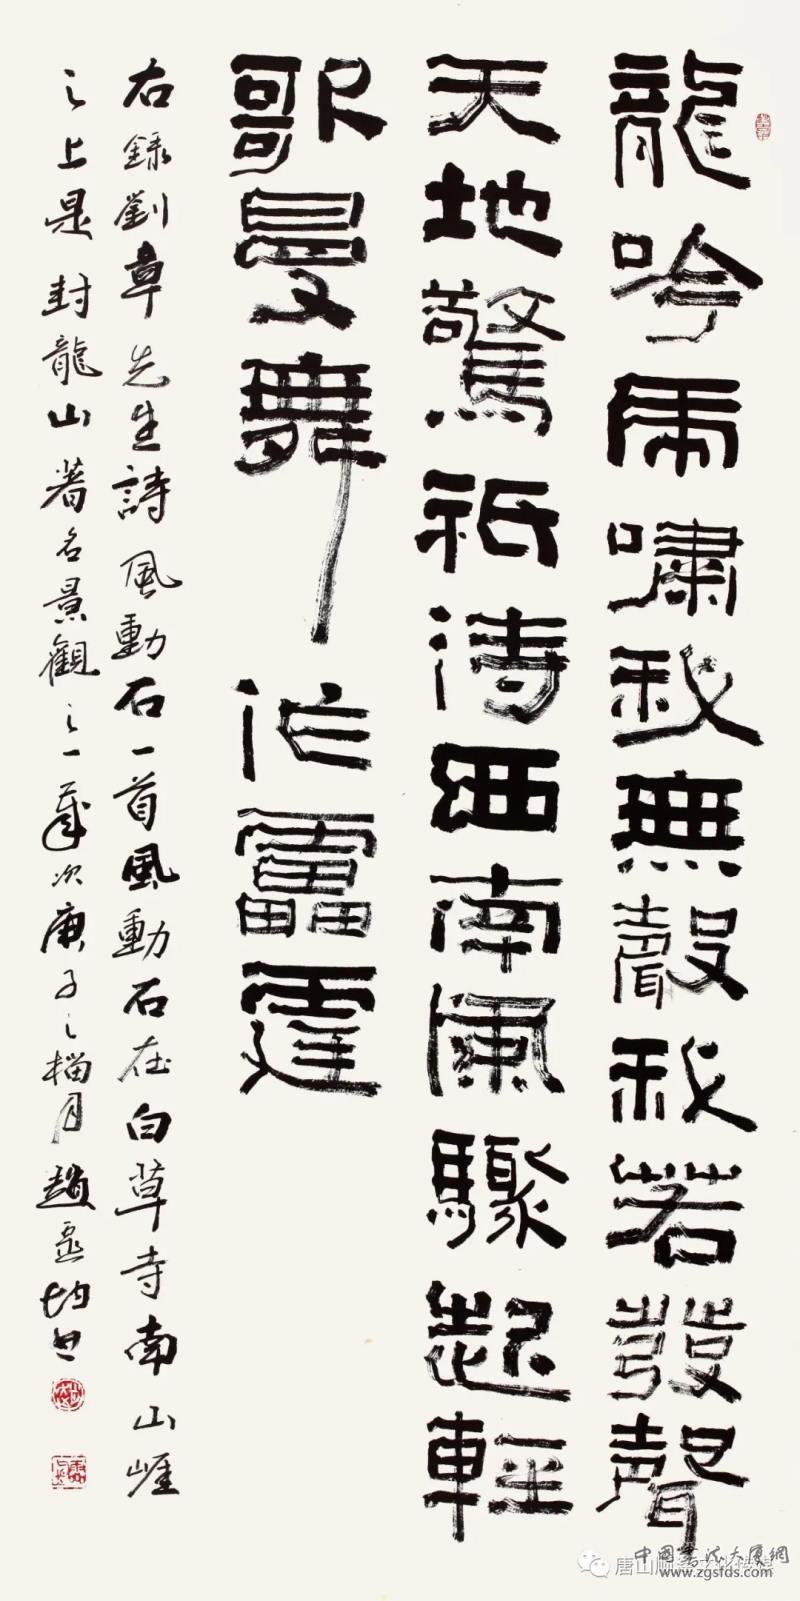 龍吟虎嘯我無聲我若發聲
天地驚祗待西南風驟起輕
歌曼舞作雷霆
右錄劉章先生詩風動石一首風動石在白草寺南山崖
之上是封龍山著名景觀之一歲次庚子之榴月趙
中國書法大厦網
唐山顺
www.zgsfds.com